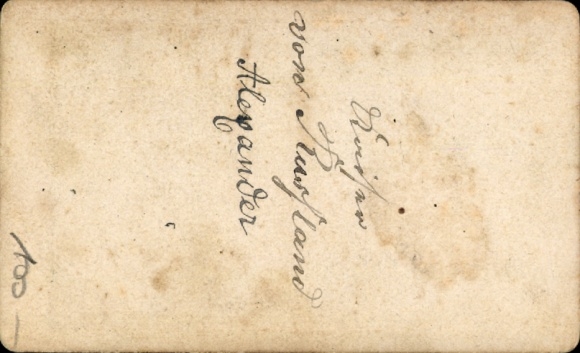 Kaiser
von Russland
Alexander
100 –